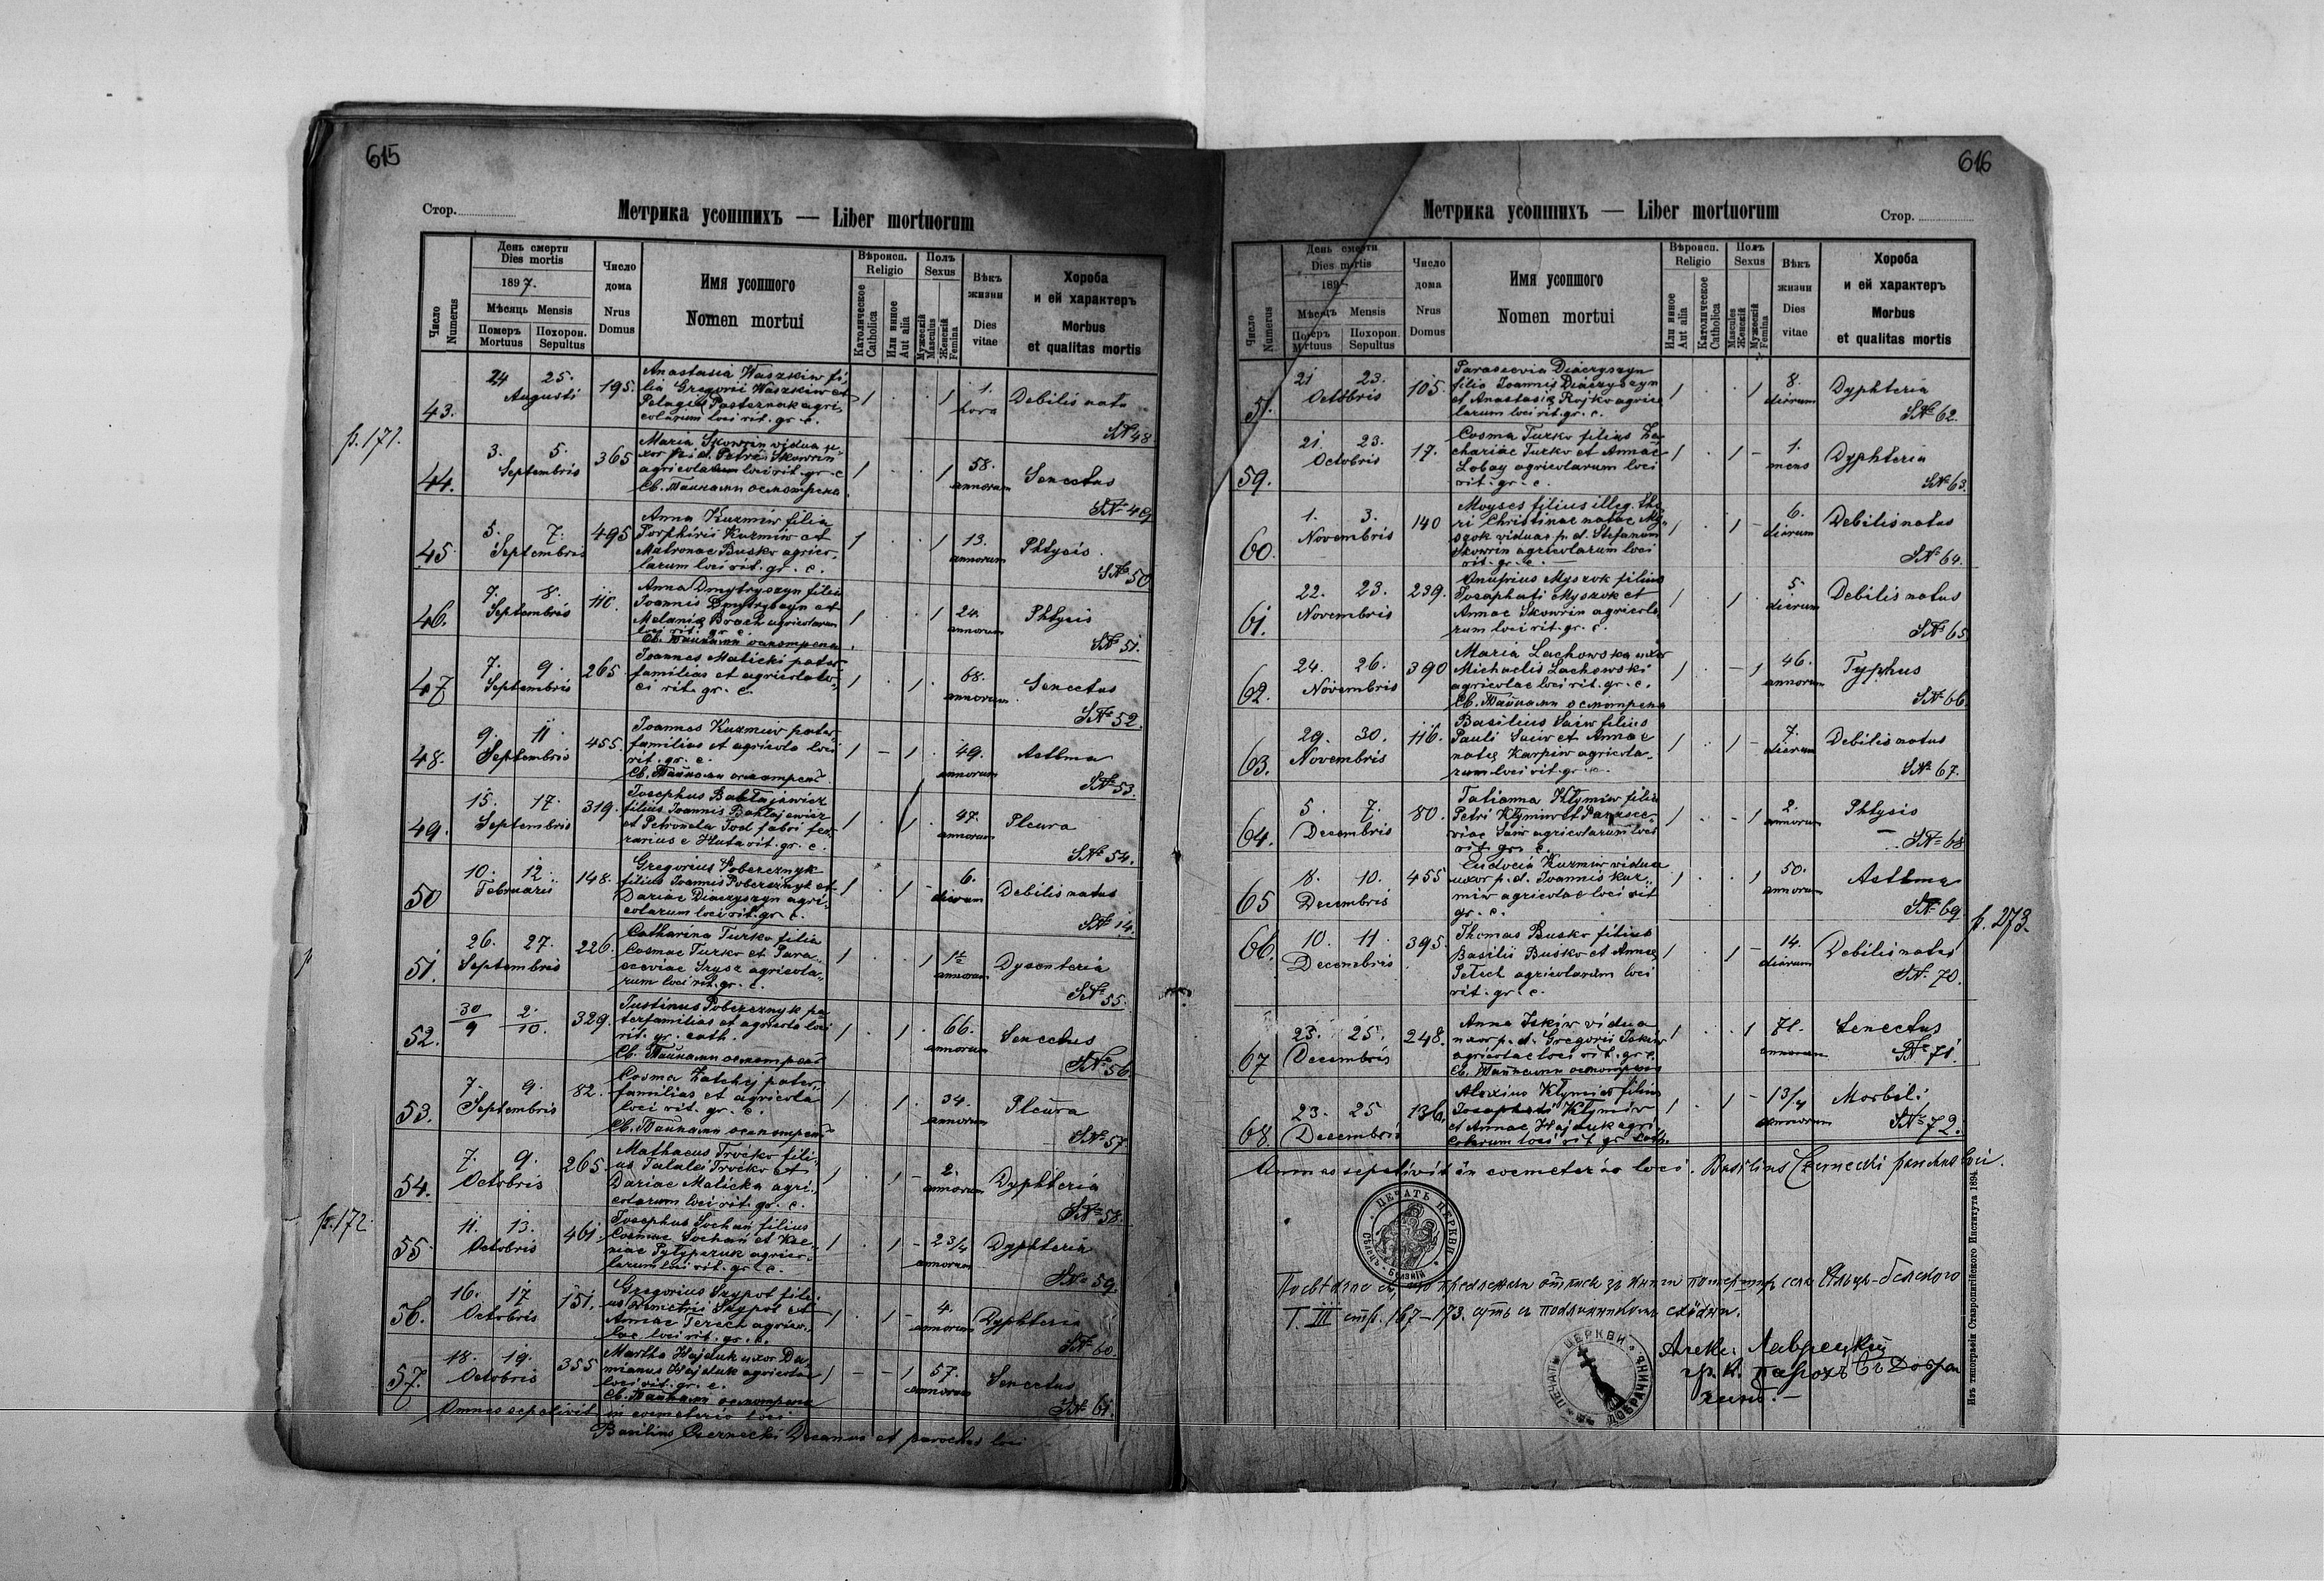 615
Стор.
Метрика усопшихъ — Liber mortuorum
Число
Numerus
День смерти
Dies mortis
1897.
Мѣсяць Mensis
Померъ
Mortuus
Похорон.
Sepultus
Число
дома
Nrus
Domus
Имя усопшого
Nomen mortui
Вѣроисп.
Religio
Католическое
Catholica
Или иное
Aut alia
Полъ
Sexus
Мужескій
Masculus
Женскій
Femina
Вѣкъ
жизни
Dies
vitae
Хороба
и ей характеръ
Morbus
et qualitas mortis
43. 24 25. Augusti 195.
Anastasia Waszkiw fi-
lia Gregorii Waszkiw et
Pelagię Pasternak agri-
colarum loci rit. gr. c.
1 . . 1 1. hora Debilis nata
SN 48
p. 171.
44. 3. 5. Septembris 365
Maria Skowrin vidua u-
xor p. d. Petri Skowrin
agricolarum loci rit. gr. c
Св. Тайнами осмотрена
1 . . 1 58. annorum Senectus
SN 49
45. 5. 7. Septembris 495
Anna Kuzmiw filia
Porphirii Kuzmiw et
Matronae Busko agrico-
larum loci rit. gr. c.
1 . . 1 13. annorum Phtysis
SN 50
46. 7. 8. Septembris 110.
Anna Dmytryszyn filia
Ioannis Dmytryszyn et
Melanię Brach agricolarum
loci rit. gr. c.
Св. Тайнами осмотрена
1 . . 1 24. annorum Phtysis
SN 51.
47 7. 9. Septembris 265
Ioannes Maticki pater-
familias et agricola lo-
ci rit. gr. c.
1 . 1 . 68. annorum Senectus
SN 52.
48. 9. 11. Septembris 455.
Ioannes Kuzmiw pater-
familias et agricola loci
rit. gr. c.
Св. Тайнами осмотренъ
1 - 1 . 49. annorum Asthma
SN 53.
49. 15. 17. Septembris 319.
Iosephus Bakłajewicz
filius Ioannis Bakłajewicz
et Petronela Tod fabri fer-
rarius e Huta rit. gr. c.
1 . 1 . 47. annorum Pleura
SN 54.
50 10. 12. Februarii 148.
Gregorius Pobereznyk
filius Ioannis Pobereznyk et
Dariae Diaczyszyn agri-
colarum loci rit. gr. c.
1 . 1 - 6. dierum Debilis natus
SN 14.
51. 26. 27. Septembris 226.
Catharina Turko filia
Cosmae Turko et Para-
sceviae Szysz agricola-
rum loci rit. gr. c.
1 . . 1 1½ annorum Dysenteria
SN 55.
52. 30/9 2./10. 329.
Iustinus Pobereznyk pa-
terfamilias et agricola loci
rit. gr. cath.
Св. Тайнами осмотренъ
1 . 1 . 66. annorum Senectus
SN 56.
53. 7. 9. Septembris 82.
Cosma Zatchij pater-
familias et agricola
loci rit. gr. c.
Св. Тайнами осмотренъ
1 . 1 . 34. annorum Pleura
SN 57.
54. 7. 9. Octobris 265.
Mathaeus Troćko fili-
us Talalei Troćko et
Dariae Maticka agri-
colarum loci rit. gr. c.
1 . 1 - 2. annorum Dyphteria
SN 58.
p. 172.
55 11. 13. Octobris 461.
Iosephus Sochań filius
Cosmae Sochań et Xe-
niae Pyłypczuk agrico-
larum loci rit. gr. c.
1 . 1 - 2 3/4 annorum Dyphteria
SN 59.
56. 16. 17 Octobris 151.
Gregorius Szypot fili-
us Demetrii Szypot et
Annae Terech agrico-
lae loci rit. gr. c.
1 . 1 - 4. annorum Dyphteria
SN 60
57. 18. 19. Octobris 355
Martha Hajduk uxor Da-
mianus Hajduk agricola
loci rit. gr. c.
Св. Тайнами осмотрена
1 - - 1 57. annorum Senectus
SN 61.
Omnes sepelivit in coemeterio loci
Basilius Czernecki Decanus et parochus loci
616
Метрика усопшихъ — Liber mortuorum
Стор.
Число
Numerus
День смерти
Dies mortis
189
Мѣсяць Mensis
Померъ
Mortuus
Похорон.
Sepultus
Число
дома
Nrus
Domus
Имя усопшого
Nomen mortui
Вѣроисп.
Religio
Или иное
Aut alia
Католическое
Catholica
Полъ
Sexus
Masculus
Женскій
Мужескій
Femina
Вѣкъ
жизни
Dies
vitae
Хороба
и ей характеръ
Morbus
et qualitas mortis
21 23. Octobris 105.
Parascevia Diaczyszyn
filia Ioannis Diaczyszyn
et Anastasię Rojko agrico-
larum loci rit. gr. c.
1 . . 1 8. dierum Dyphteria
SN 62.
59. 21 23. Octobris 17.
Cosma Turko filius Za-
chariae Turko et Annae
Lobay agricolarum loci
rit. gr. c.
1 . 1 - 1. mens Dyphteria
SN 63.
60. 1. 3. Novembris 140
Moyses filius illeg. tho-
ri Christinae natae My-
szok viduae p. d. Stefanum
Skowrin agricolarum loci
rit. gr. c.
1 . 1 - 6. dierum Debilis natus
SN 64.
61. 22. 23. Novembris 239.
Onufrius Myszok filius
Iosaphati Myszok et
Annae Skowrin agricola-
rum loci rit. gr. c.
1 . 1 . 5. dierum Debilis natus
SN 65
62. 24. 26. Novembris 390
Maria Lachowska uxor
Michaelis Lachowski
agricolae loci rit. gr. c.
Св. Тайнами осмотрена
1 . - 1 46. annorum Typhus
SN 66
63. 29. 30. Novembris 116.
Basilius Saiw filius
Pauli Saiw et Annae
natę Karpiw agricola-
rum loci rit. gr. c.
1 . 1 - 7. dierum Debilis natus
SN 67.
64. 5. 7. Decembris 80.
Tatianna Kłymiw filia
Petri Kłymiw et Parasce-
viae Saiw agricolarum loci
rit. gr. c.
1 . - 1 2. annorum Phtysis
SN 68
65 8. 10. Decembris 455
Eudocia Kuzmiw vidua
uxor p. d. Ioannis Kuz-
miw agricolae loci rit
gr. c.
1 . . 1 50. annorum Asthma
SN 69
p. 273.
66. 10. 11. Decembris 395.
Thomas Busko filius
Basilii Busko et Annae
Petech agricolarum loci
rit. gr. c.
1 . 1 - 14. dierum Debilis natus
SN. 70.
67 23. 25. Decembris 248.
Anna Iskiw vidua
uxor p. d. Gregorii Iskiw
agricolae loci rit. gr. c.
Св. Тайнами осмотрена
1 . . 1 71. annorum Senectus
SN 71.
68. 23. 25 Decembris 136.
Alexius Kłymiw filius
Iosaphati Kłymiw
et Annae Hajduk agri-
colarum loci rit gr. cath.
1 . 1 - 1 3/4 annorum Morbili
SN 72.
Omnes sepelivit in coemeterio loci. Basilius Czernecki parochus loci.
ПЕЧАТЬ ЦЕРКВИ
Т. III стр. 167–173. суть с подлинником
ПЕЧАТЬ ЦЕРКВИ ДОБРАЧИНЪ
Алекс. Лаврецкій
гр. к. парохъ въ Добра
чинѣ.
Изъ типографіи Ставропигійского Института 1894